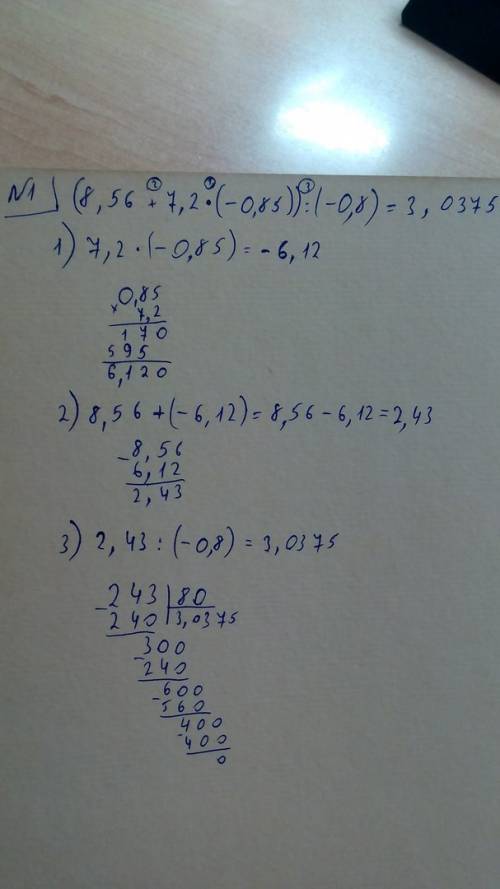 №1 (8,56 + 7,2 · (-0,85)) : (-0,8) = 3,0375
② ① ③
1) 7,2 · (-0,85) = -6,12
0,85
× 7,2
170
595
6,120
2) 8,56 + (-6,12) = 8,56 - 6,12 = 2,43
- 8,56
6,12
2,43
3) 2,43 : (-0,8) = 3,0375
- 243 | 80
240 | 3,0375
- 300
240
- 600
560
- 400
400
0